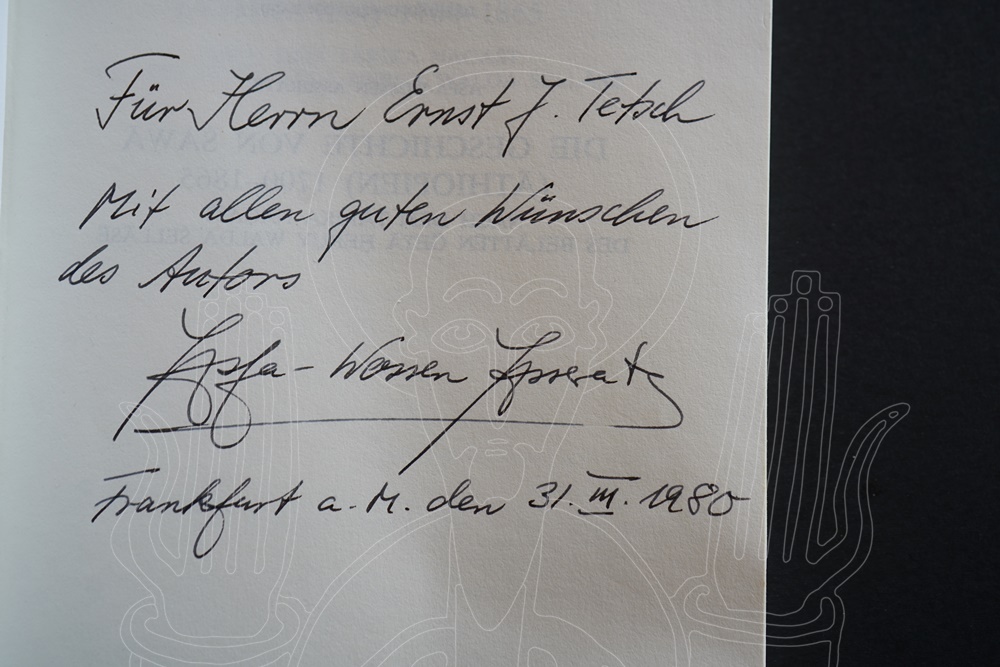 Für Herrn Ernst J. Tetsch
Mit allen guten Wünschen
des Autors
Asfa-Wossen Asserate
Frankfurt a. M. den 31. III. 1980
DIE GESCHICHTE VON ŠAWA
(ÄTHIOPIEN) 1700-1865